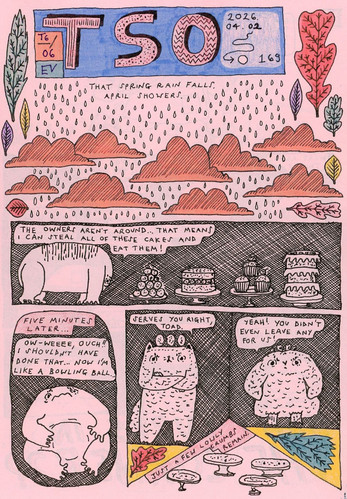 T6
06
EV
TSO
2026.
04.02
169
THAT SPRING RAIN FALLS.
APRIL SHOWERS.
THE OWNERS AREN'T AROUND... THAT MEANS
I CAN STEAL ALL OF THESE CAKES AND
EAT THEM!
FIVE MINUTES
LATER...
OW-WEEEE, OUCH!
I SHOULDN'T HAVE
DONE THAT... NOW I'M
LIKE A BOWLING BALL.
SERVES YOU RIGHT,
TOAD.
YEAH! YOU DIDN'T
EVEN LEAVE ANY
FOR US!
JUST A FEW LONELY
CRUMBS
REMAIN.